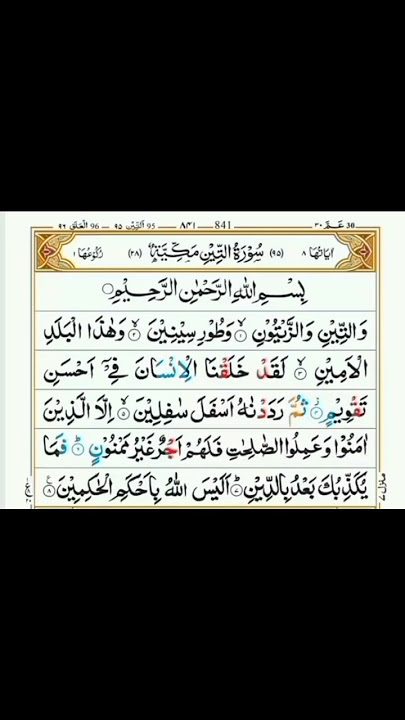 30 عـــمّ ٣٠ 841 ٨٤١ 95 التِّيْن ٩٥ 96 الْعلق ٩٦
اٰيَاتُهَا ٨ (٩٥) سُوْرَةُ التِّيْنِ مَكِّيَّةٌ (٢٨) رُكُوْعُهَا ١
بِسْمِ اللهِ الرَّحْمٰنِ الرَّحِيْمِ
وَالتِّيْنِ وَالزَّيْتُوْنِ ۙ﴿١﴾ وَطُوْرِ سِيْنِيْنَ ۙ﴿٢﴾ وَهٰذَا الْبَلَدِ
الْاَمِيْنِ ۙ﴿٣﴾ لَقَدْ خَلَقْنَا الْاِنْسَانَ فِيْٓ اَحْسَنِ
تَقْوِيْمٍ ۫﴿٤﴾ ثُمَّ رَدَدْنٰهُ اَسْفَلَ سٰفِلِيْنَ ۙ﴿٥﴾ اِلَّا الَّذِيْنَ
اٰمَنُوْا وَعَمِلُوا الصّٰلِحٰتِ فَلَهُمْ اَجْرٌ غَيْرُ مَمْنُوْنٍ ؕ﴿٦﴾ فَمَا
يُكَذِّبُكَ بَعْدُ بِالدِّيْنِ ؕ﴿٧﴾ اَلَيْسَ اللهُ بِاَحْكَمِ الْحٰكِمِيْنَ ﴿٨﴾
منزل ٧